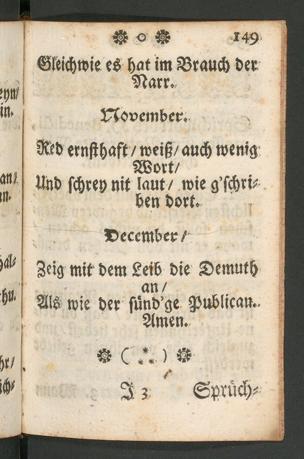 ❁ o ❁ 149
Gleichwie es hat im Brauch der
Narr.
November.
Red ernsthaft / weiß / auch wenig
Wort /
Und schrey nit laut / wie g'schri-
ben dort.
December /
Zeig mit dem Leib die Demuth
an /
Als wie der sünd'ge Publican.
Amen.
❁ ( ⁂ ) ❁
J 3 Sprüch-